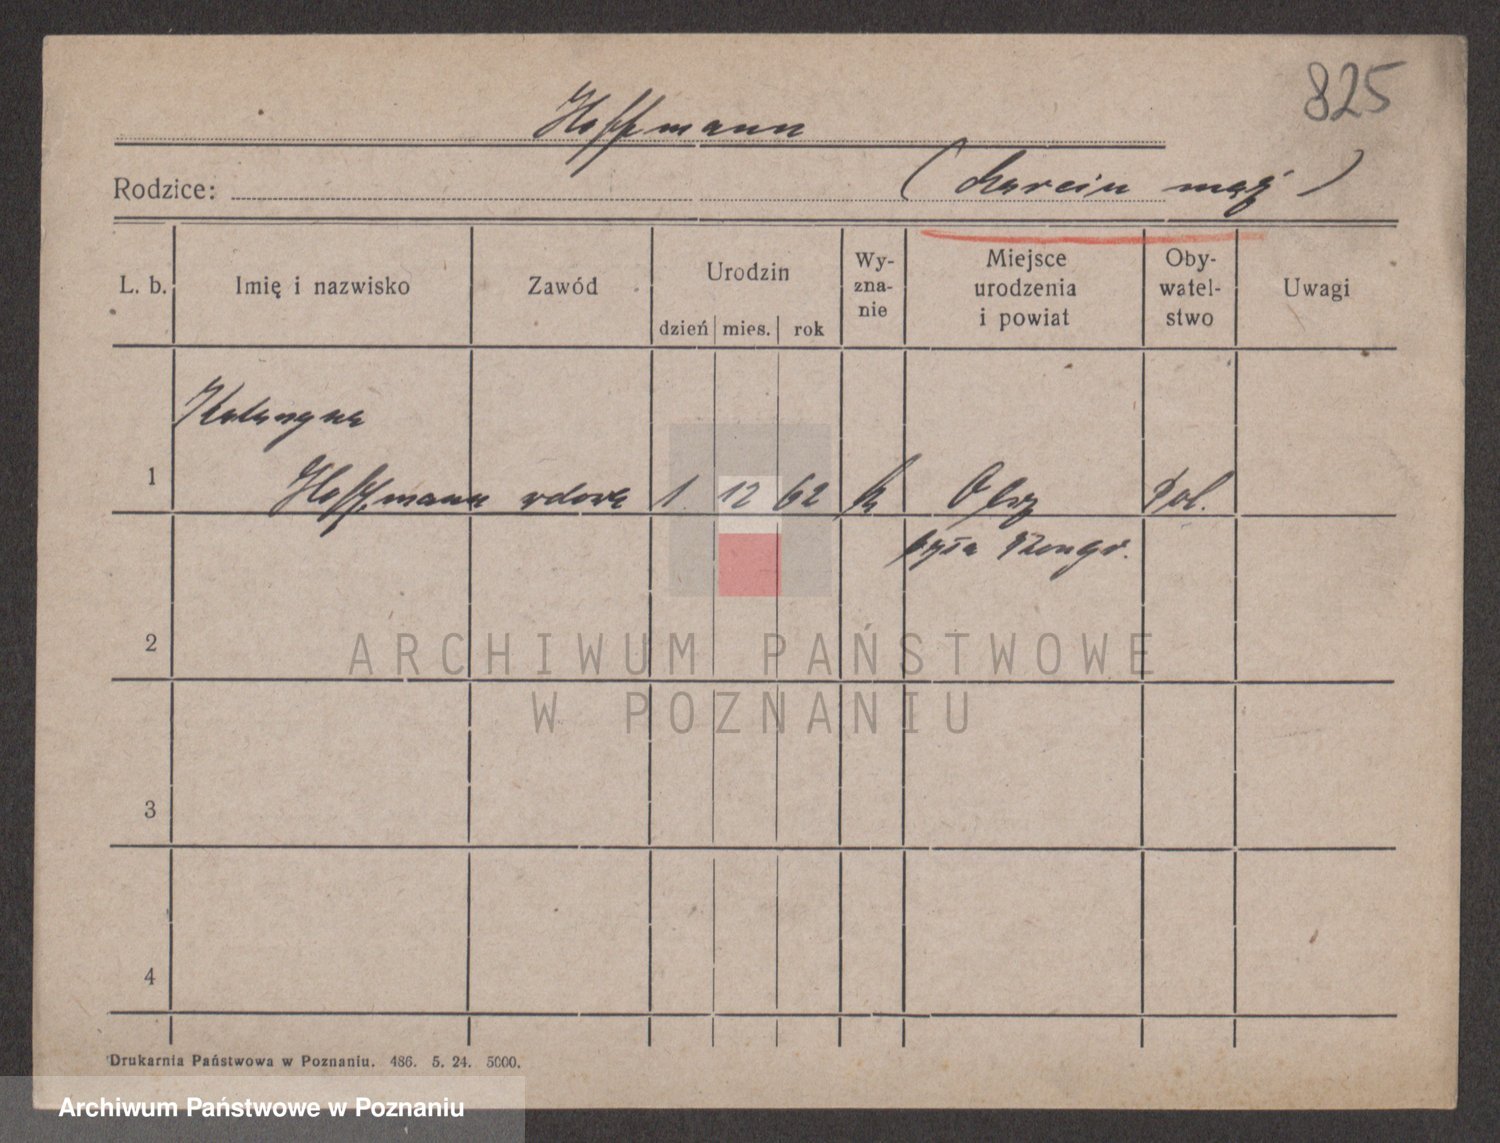 825
Hoffmann
Rodzice: (Marcin mąż)
L. b. Imię i nazwisko Zawód Urodzin dzień mies. rok Wy-zna-nie Miejsce urodzenia i powiat Oby-watel-stwo Uwagi
Katarzyna
1 Hoffmann wdowa 1. 12 62 k Pol.
była Kongr.
2
ARCHIWUM PAŃSTWOWE
W POZNANIU
3
4
Drukarnia Państwowa w Poznaniu. 486. 5. 24. 5000.
Archiwum Państwowe w Poznaniu